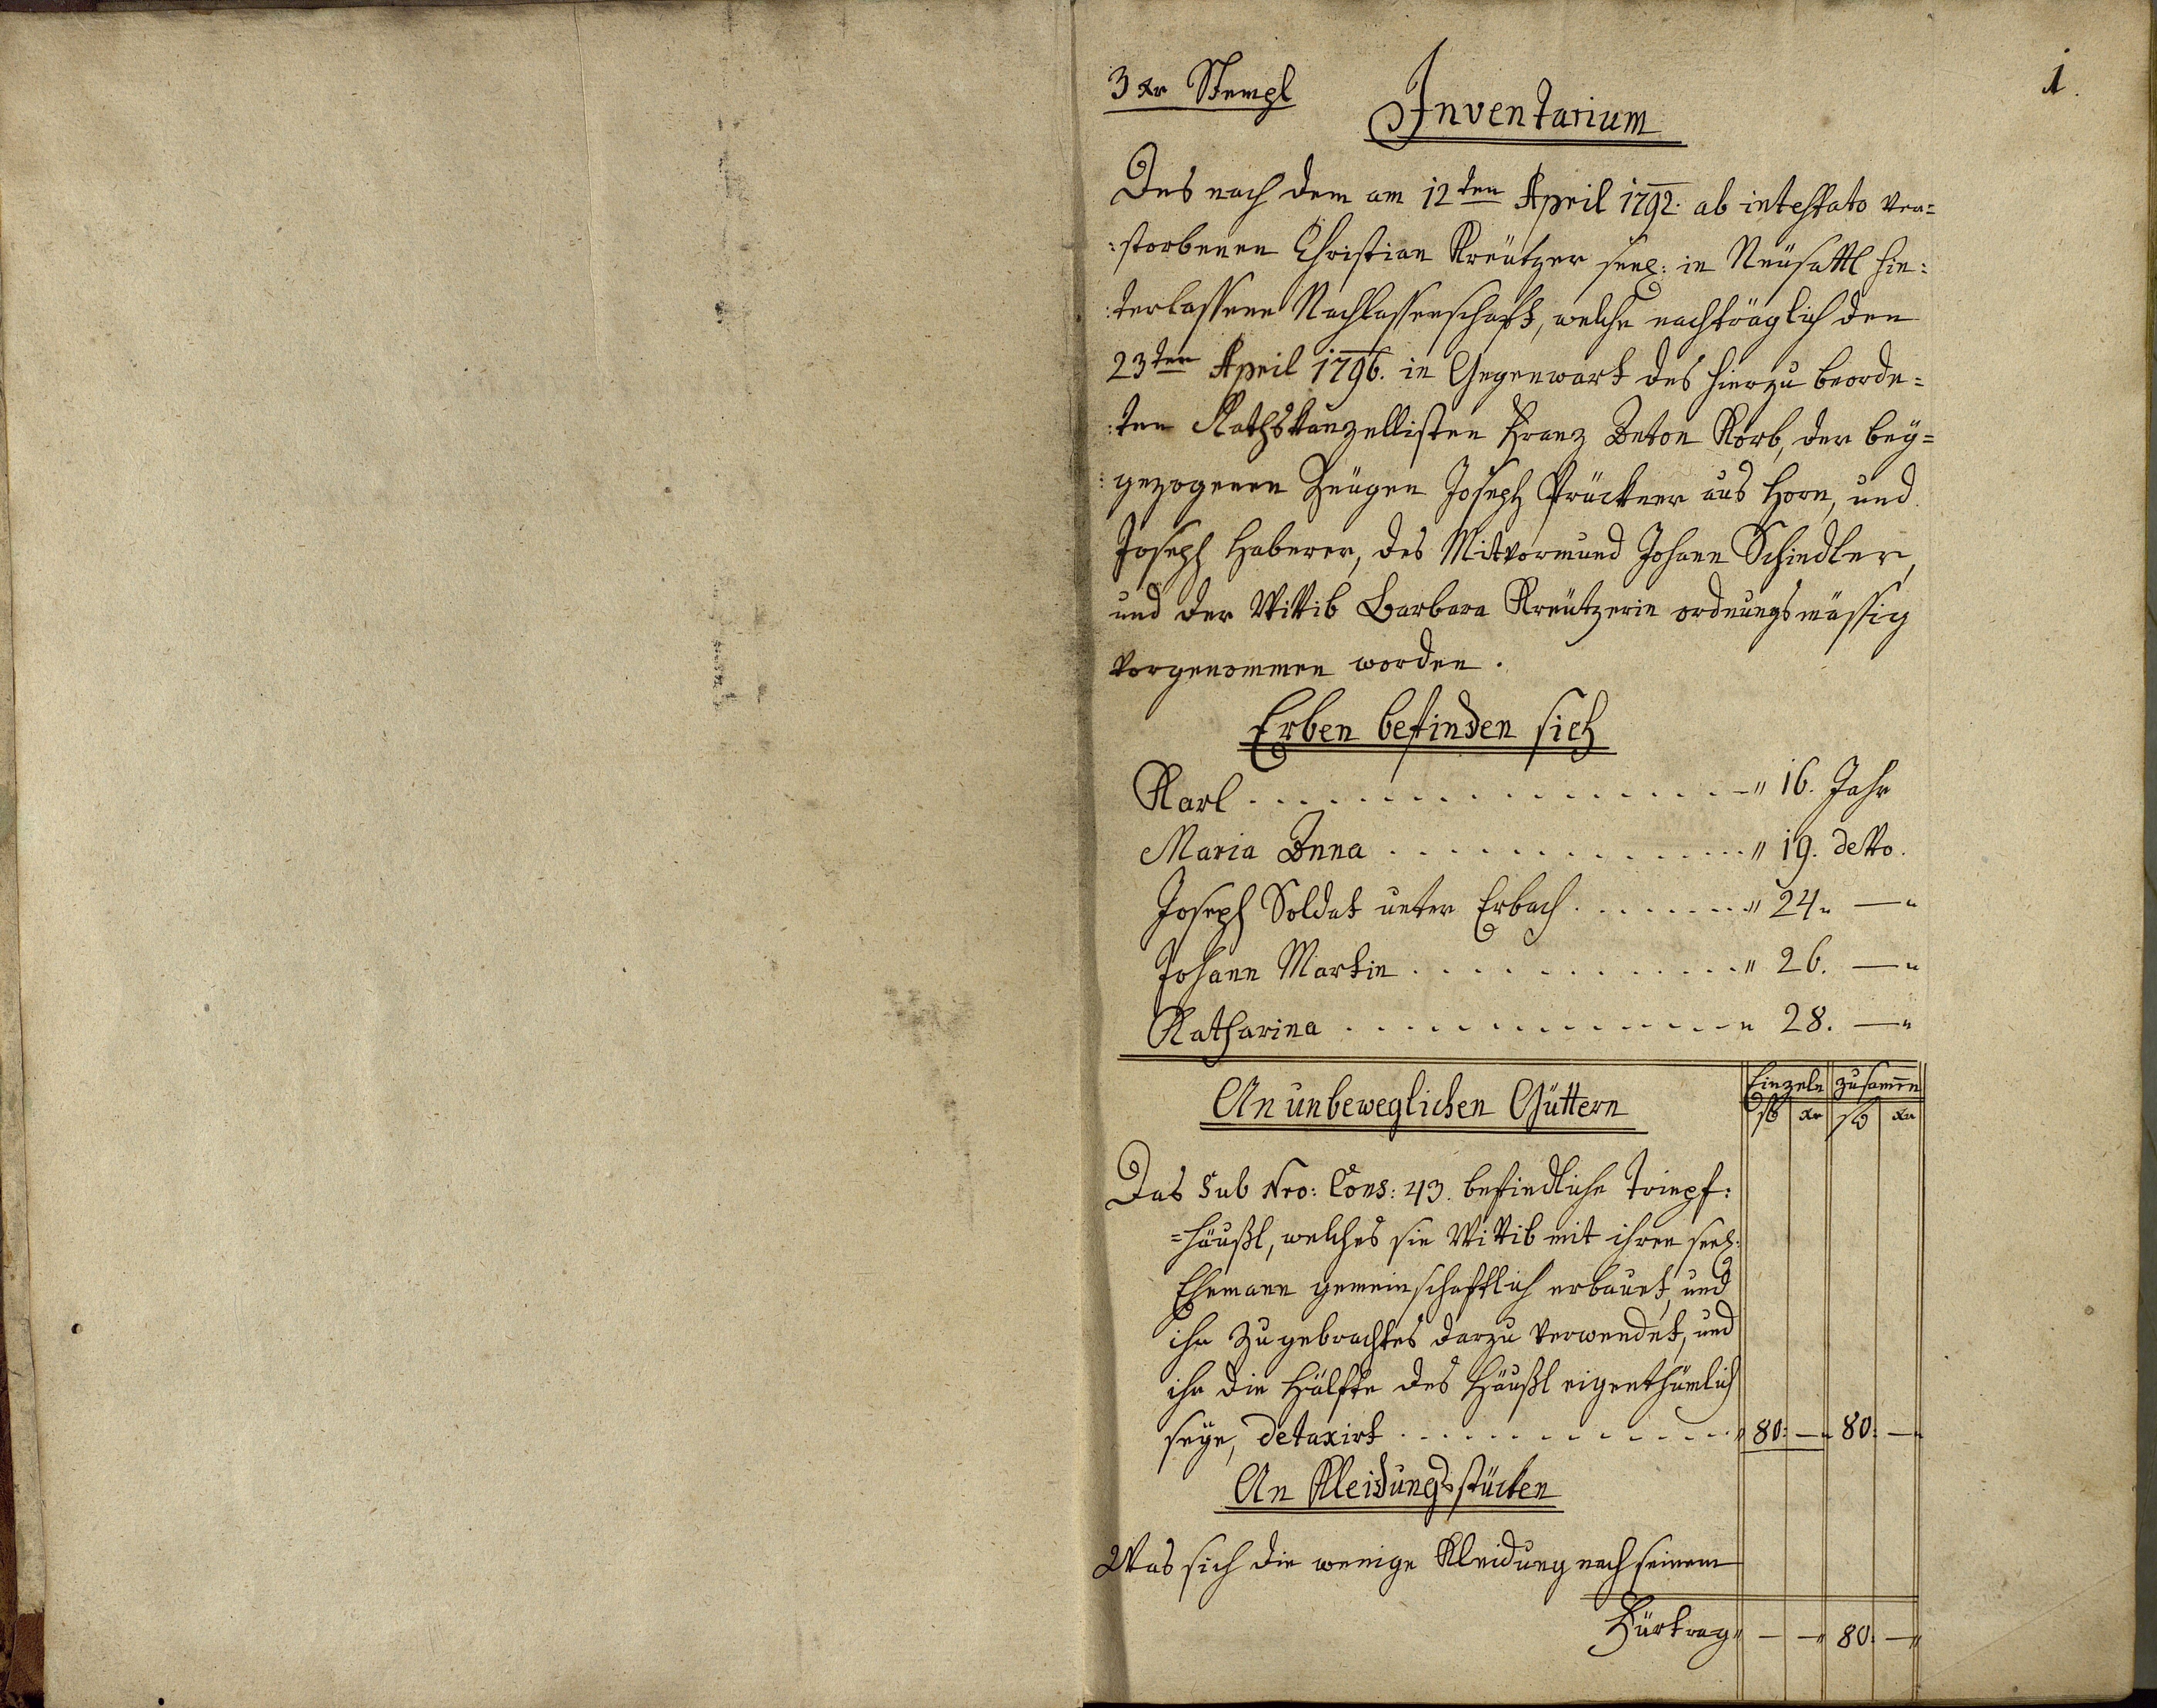 1.
3 xr Stempl
Inventarium
Des nach dem am 12ten April 1792. ab intestato ver=
:storbenen Christian Kreützer seel: in Neüsattl hin:
:terlassene Nachlassenschaft, welche nachträglich den
23ten April 1796. in Gegenwart des hierzu beorde=
:ten Rathskanzellisten Franz Anton Korb, der bey=
:gezogenen Zeügen Joseph Prückner aus Horn, und
Joseph Haberer, des Mitvormund Johann Schindler,
und der Wittib Barbara Kreützerin ordnungsmässig
vorgenommen worden.
Erben befinden sich
Karl . . . . . . . . . . " 16. Jahr
Maria Anna . . . . . . . . " 19. detto.
Joseph Soldat unter Erbach . . . . . " 24. — "
Johann Martin . . . . . . . " 26. — "
Katharina . . . . . . . . " 28. — "
An unbeweglichen Güttern
Einzeln zusammen
fl xr fl xr
Das Sub Nro: Cons: 43. befindliche Tripf:
=häußl, welches sie Wittib mit ihren seel:
Ehemann gemeinschaftlich erbauet, und
ihr Zugebrachtes darzu verwendet, und
ihr die Hälfte des Häußl eigenthümlich
seye, detaxirt . . . . . . . " 80: — " 80: — "
An Kleidungsstücken
Was sich die wenige Kleidung nach seinem
Fürtrag " — — " 80. — "